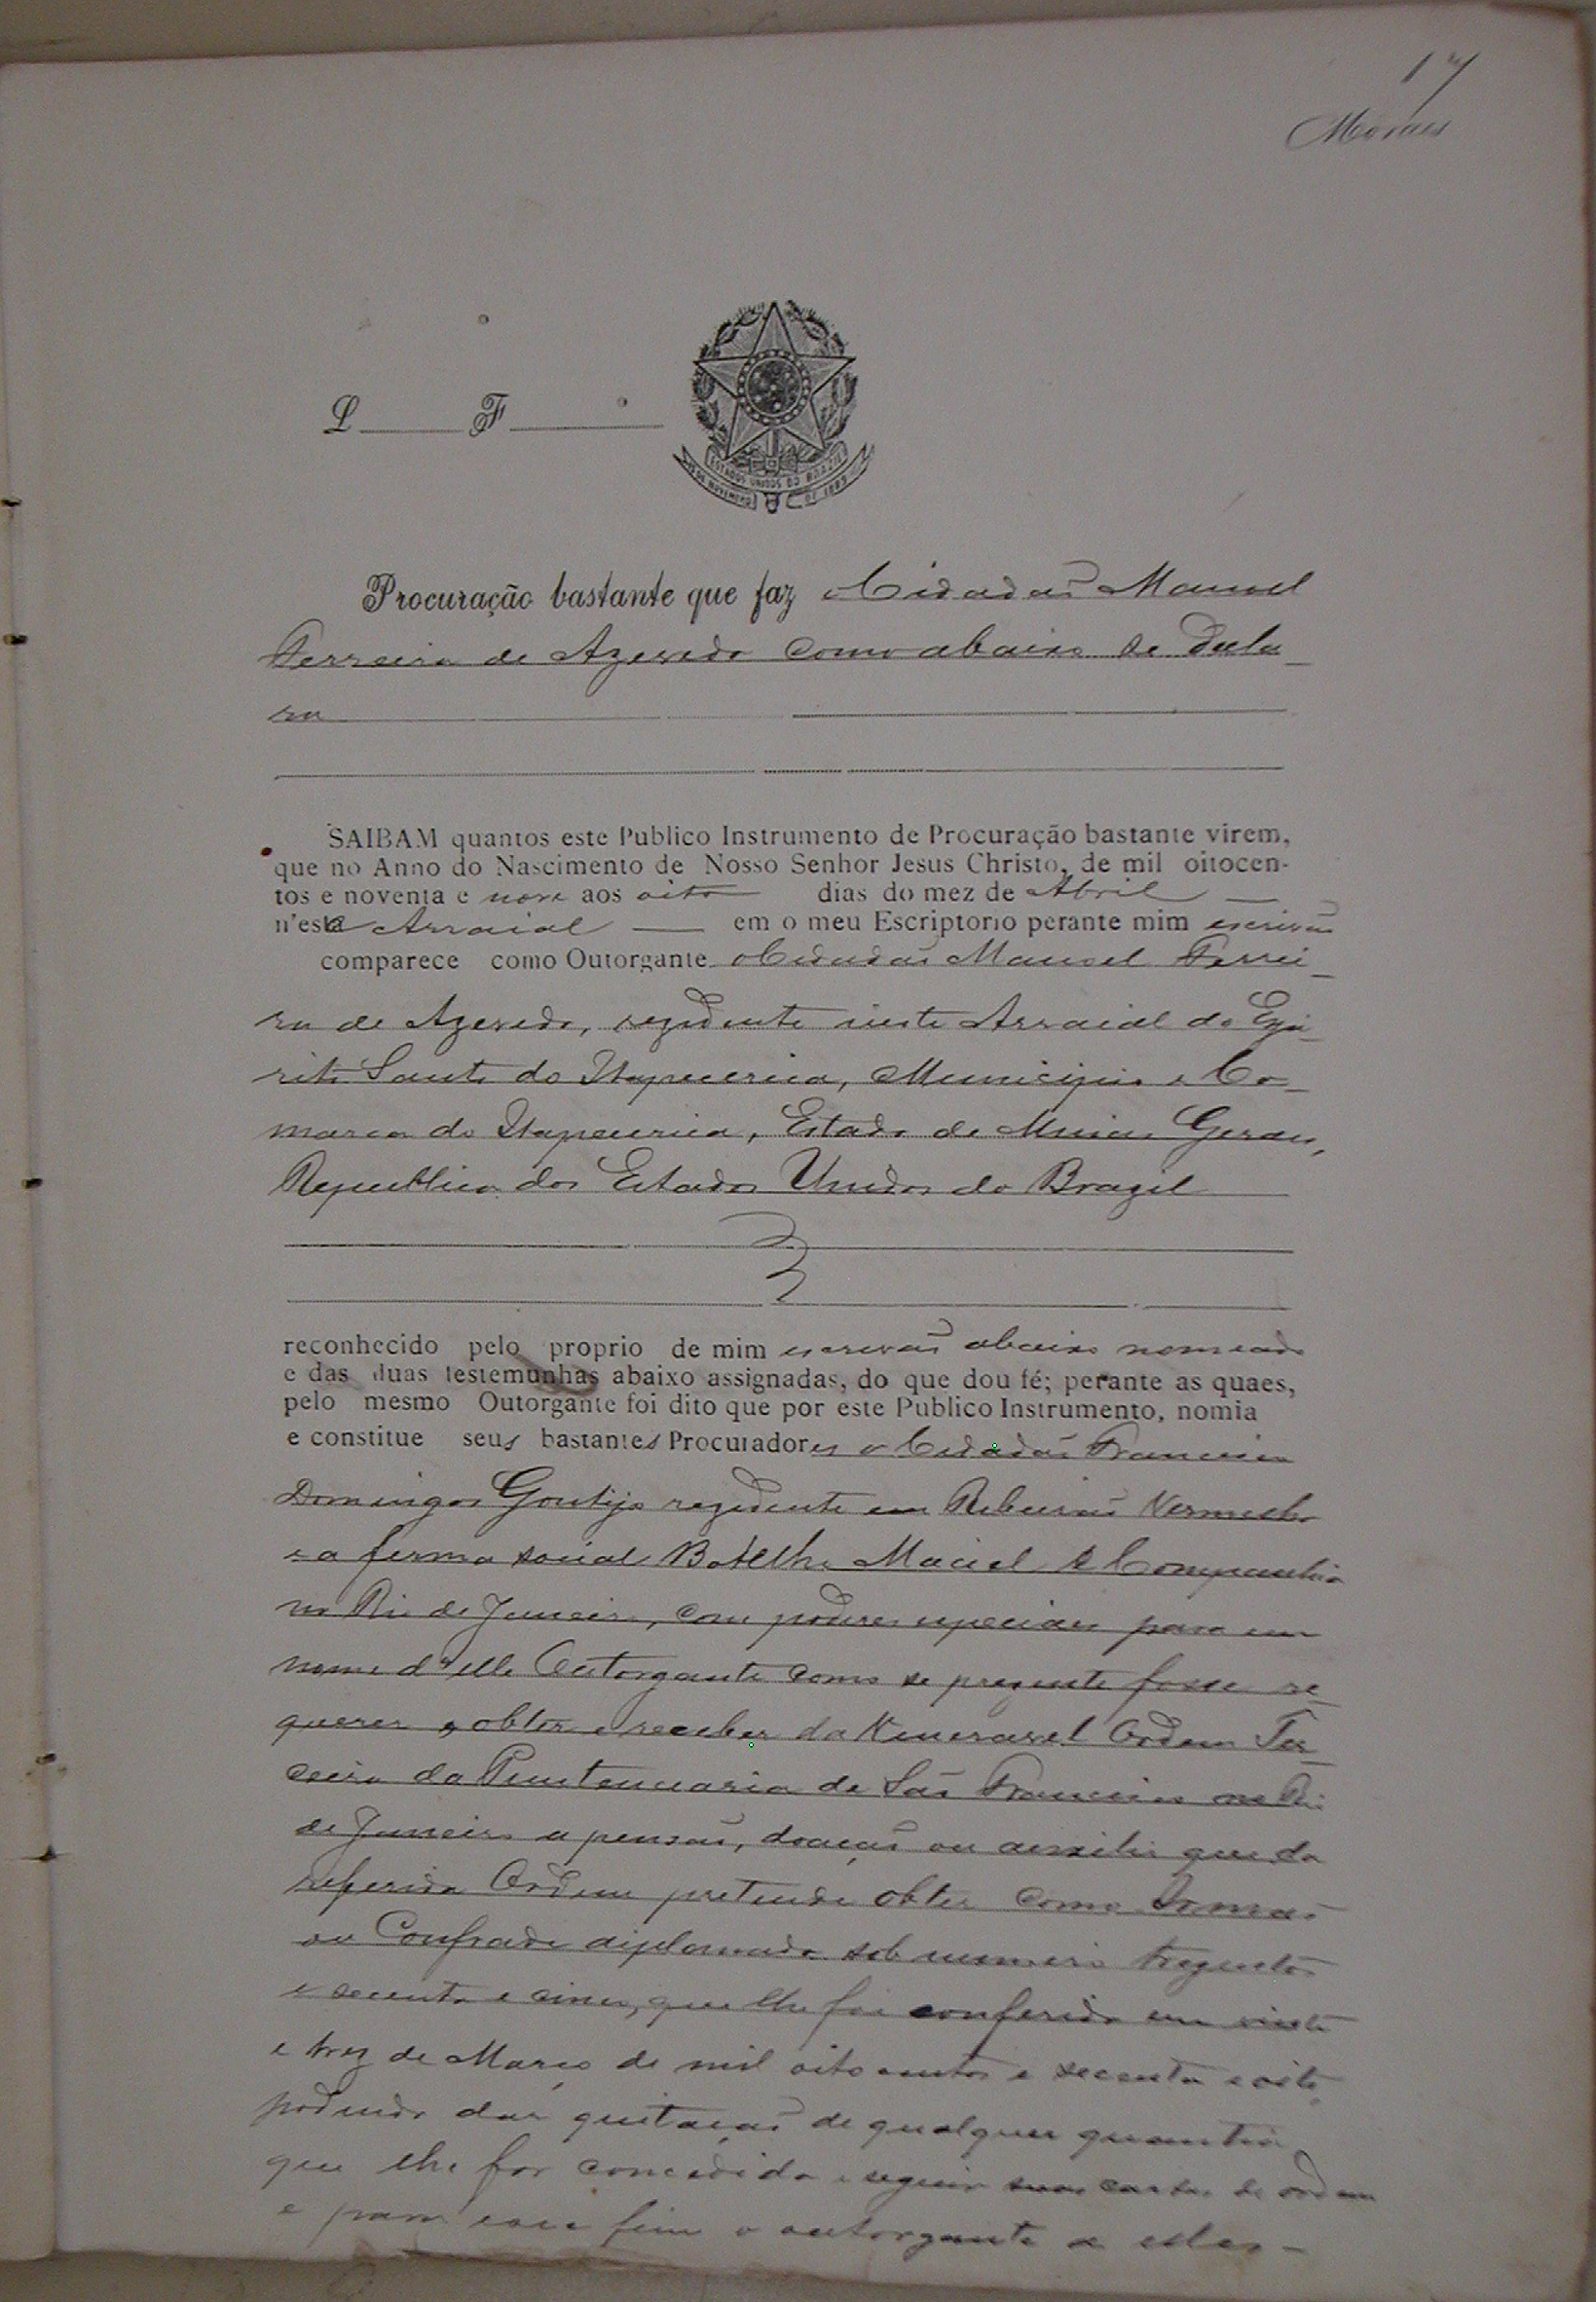 17
Moraes
L F
ESTADOS UNIDOS DO BRAZIL
15 DE NOVEMBRO DE 1889
Procuração bastante que faz o Cidadaõ Manoel
Ferreira de Azevedo como abaixo se decla-
ra
SAIBAM quantos este Publico Instrumento de Procuração bastante virem,
que no Anno do Nascimento de Nosso Senhor Jesus Christo, de mil oitocen-
tos e noventa e nove aos oito dias do mez de Abril
n'este Arraial em o meu Escriptorio perante mim escrivaõ
comparece como Outorgante o Cidadaõ Manoel Ferrei-
ra de Azevedo, rezidente neste Arraial do Espi-
rito Santo do Itapecerica, Municipio e Co-
marca do Itapecerica, Estado de Minas Geraes,
Republica dos Estados Unidos do Brazil
reconhecido pelo proprio de mim escrivaõ abaixo nomeado
e das duas testemunhas abaixo assignadas, do que dou fé; perante as quaes,
pelo mesmo Outorgante foi dito que por este Publico Instrumento, nomia
e constitue seus bastantes Procuradores o Cidadaõ Francisco
Domingos Gontijo rezidente em Ribeiraõ Vermelho
e a firma social Botelho Maciel & Companhia
no Rio de Janeiro, com poderes especiaes para em
nome d'elle Outorgante como se prezente fosse re-
querer, obter e receber da Veneravel Ordem Ter-
ceira da Penitenciaria de Saõ Francisco no Rio
de Janeiro a pensaõ, doaçaõ ou auxilio que da
referida Ordem pretende obter como Irmaõ
ou Confrade diplomado sob numero trezentos
e secenta e cinco, que lhe foi conferido em vinte
e trez de Março de mil oito centos e secenta e oito,
podendo dar quitaçaõ de qualquer quantia
que lhe for concedida e seguir suas cartas de ordem
e para esse fim o outorgante a estes